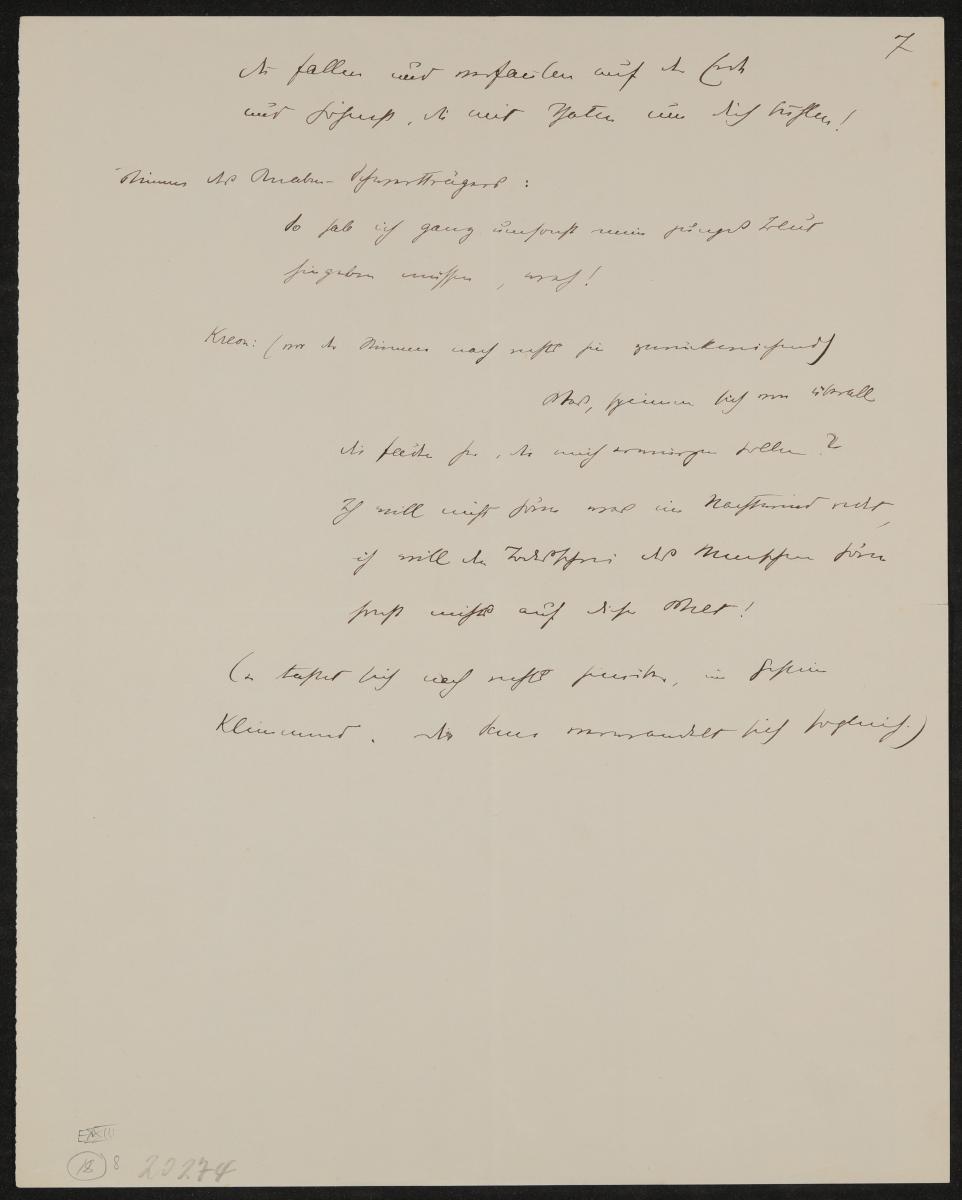 7
die fallen und verfaulen auf der Erde
und höhnest, die mit Thaten um dich buhlen!
Stimme des Knaben-Schwertträgers:
So hab ich ganz umsonst mein junges Blut
hingeben müssen, weh!
Kreon: (vor der Stimme nach rechts hin zurückweichend)
Was, spinnen sich von überall
die Fäden her, die mich erwürgen sollen?
Ich will nicht hören was im Nachtwind redet,
ich will den Todesschrei des Menschen hören
sonst nichts auf dieser Welt!
(er tastet sich nach rechts hinüber, im Gestein
Kleinmund. die verwandelt sich sogleich.)
18 8 20274